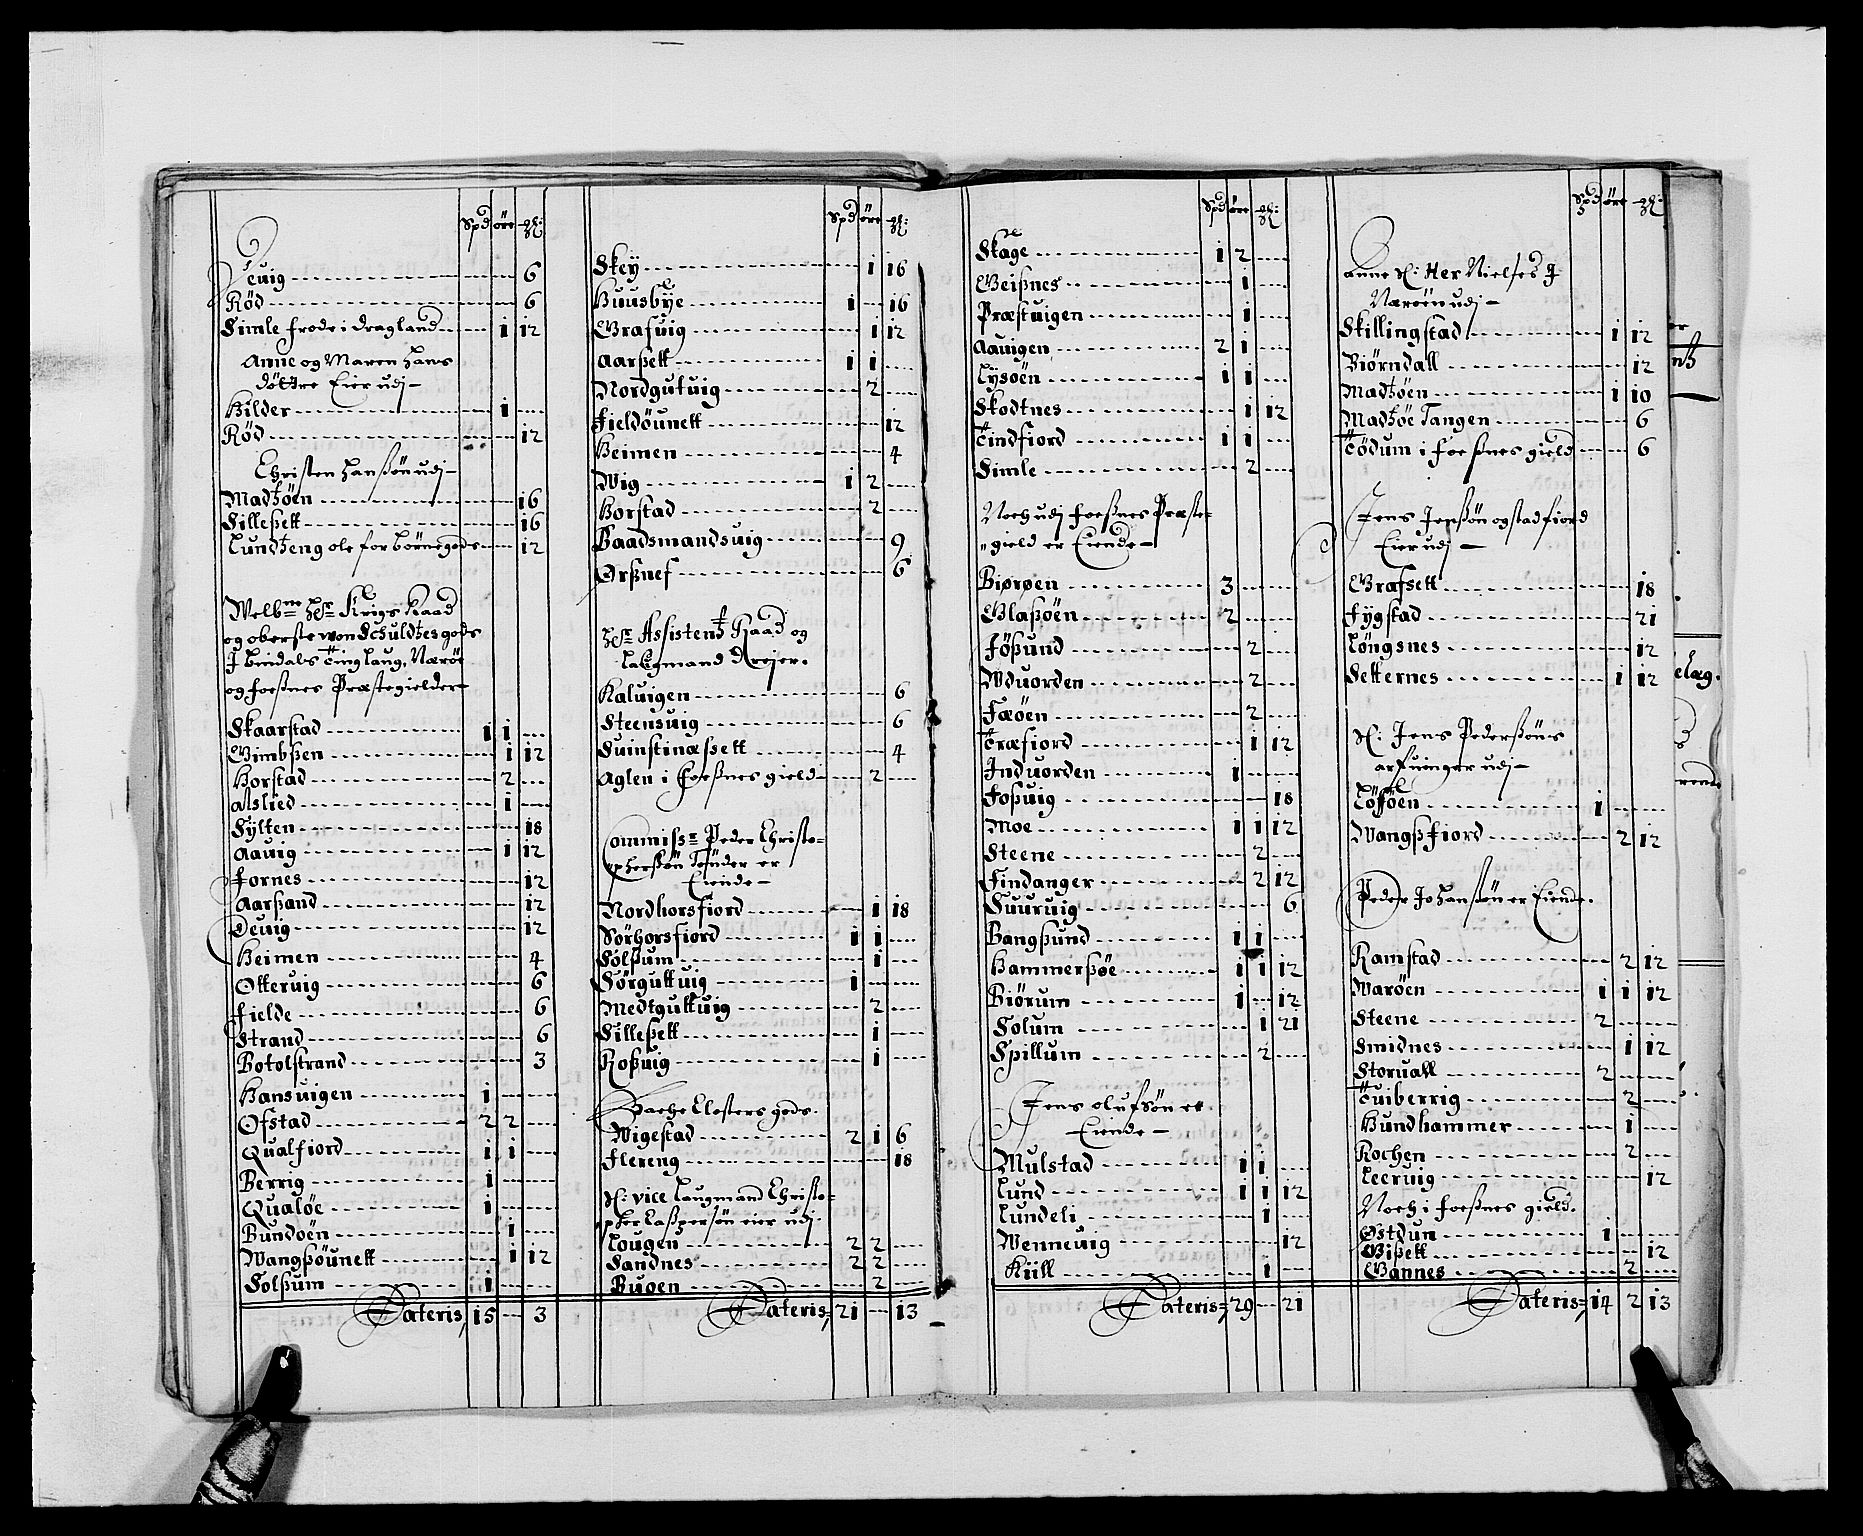 Spd öre
euig 6
Röd 6
Simle frode i dragland 1 12
Anne og Maren Hans
döttre Eier udj
Hilder 1
Röd 12
Christen Hanßön udj
Madtzöen 16
Silleßett 16
Lundtzeng ole for Börnegods 12
Welbne Hr Krigs Raad
og oberste von Schuldtzes gods
J Bindals Tinglaug, Næröe
og foeßnes Præstegielder
Skaarstad 1 1
Gimbßen 1 12
Horstad 2
Alslied 1
Sylten 18
Aauig 1 12
Fornes 12
Aarßand 12
Deuig 12
Heimen 4
Otteruig 6
Fielde 6
Strand 6
Botolstrand 3
Hansuigen 1
Ofstad 2 2
Qualfiord 1 1
Berrig 1
Qualöe 1
Bundöen 1
Wangßöunett 1 12
Solßum 1
Lateris 15 3
Spd öre
Skey 1 16
Huusbye 1 16
Grafuig 1 12
Aarßett 1 1
Nordgutuig 2
Fieldöunett 12
Heimen 4
Wig 1 2
Horstad 2
Baadsmandsuig 9
Ørßnef 6
Hr Assistentz Raad og
Laugmand Drejer.
Kaluigen 6
Steensuig 6
Suinstinæßett 4
Aglen i foeßnes gield 2
Commißr Peder Christo=
pherßön Tönder er
Eiende
Nordhorsfiord 1 18
Sörhorsfiord 1 1
Solßum 1
Sörguttuig 1
Medtguttuig 2
Silleßett 1
Roßuig 1
Bache Closters gods.
Wigestad 2 1 6
Flereng 18
Sl: vice Laugmand Christo=
pher Caßperßön eier udj
Lougen 2 2
Sandnes 2 2
Buoen 2
Lateris 21 13
Spd öre
Skage 1 2
Geißnes 1
Præstuigen 1
Aauigen 2 1
Lysöen 1 1
Skodtnes 1 12
Tindfiord 1 1
Simle 2
Noch udj foeßnes Præste=
gield er Eiende
Biørøen 3
Glaßöen 2
Jößund 2
Wduorden 2
Fæöen 2
Træfiord 1 12
Induorden 1
Foßuig 18
Moe 1 1 12
Steene 2
Findanger 2 12
Suuruig 6
Bangßund 1 1
Hammerßöe 1 1 12
Biörum 1 12
Solum 1 21
Spillum 2
Jens olufsön er
Eiende
Mulstad 1 1
Lund 1 1 12
Lundeli 1
Wenneuig 12
Kiill 1
Lateris 29 21
Spd öre
Anne Sl: Her Nielses J
Næröen udj
Skillingstad 1 12
Biörndall 12
Madtzöen 1 10
Madtzöe Tangen 6
Tödum i foeßnes gield 6
Jens Jenßön og stadfiord
Eier udj
Græfsett 18
Fygstad 21
Löngsnes 12
Setternes 1 12
Sl: Jens Pederßöns
arfuinger udj
Löföen 1
Wangsfiord 2 12
Peder Johanßön er Eiende.
Ramstad 2 12
Waröen 1 1 12
Steene 2
Smidnes 1 12
Storuall 2
Tuiberrig 2
Hundhammer 1
Kochen 2
Leeruig 12
Noch i foeßnes gield.
Østdun 1
Gißett 12
Gannes 2
Lateris 14 2 13
elag.